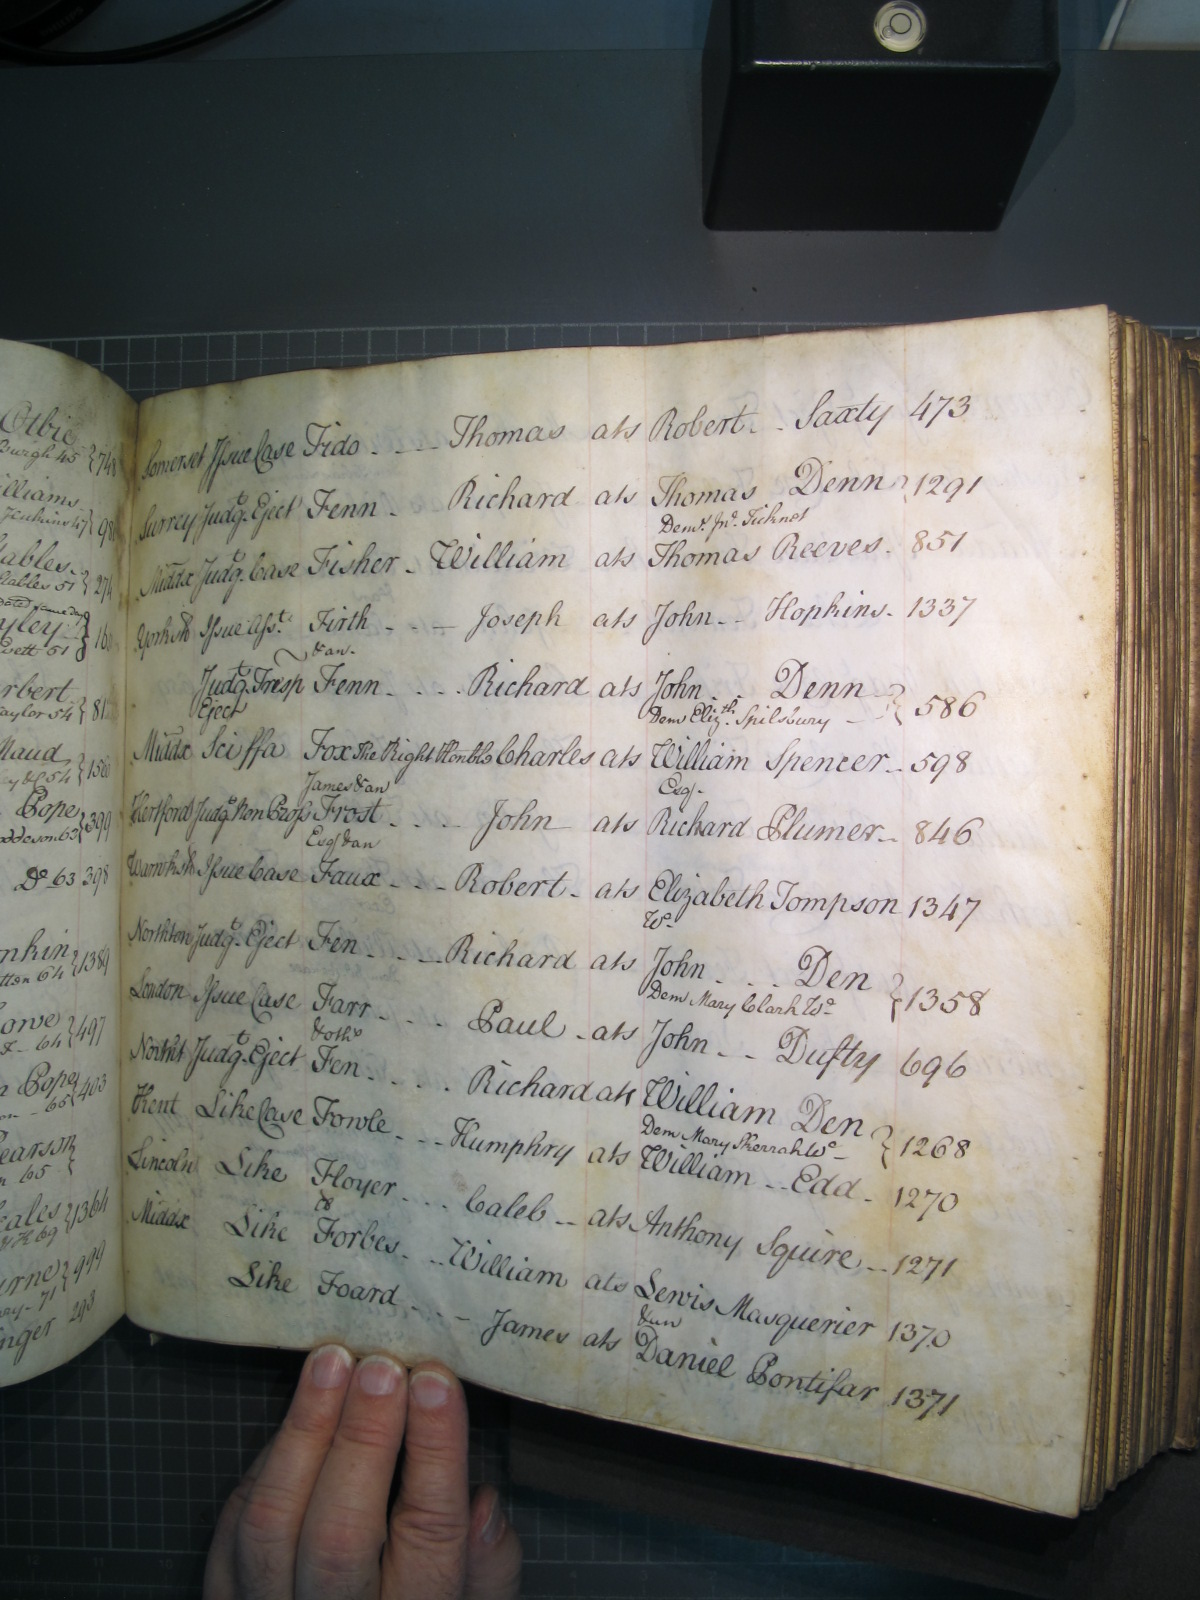 Otbie
Burgh 45 } 748
illiams
Jenkins 47 } 98
ables
Stables 51 } 274
Dated same day
yley
sett 51 } 16
rbert
aylor 54 } 81
Maud
54 } 150
Pope
oddeson 63 } 399
Do 63 398
nkin
tton 64 } 1389
owe
64 } 497
Pope
on - 65 } 403
earson
n 65 }
eales
69 } 1364
urne
ary - 71 } 999
inger 293
Somerset Issue Case Fido - - - Thomas ats Robert - - Saxty 473
Surrey Judgt. Eject Fenn - Richard ats Thomas Denn } 1291
Demt. Jno. Ticknet
Middx Judgt. Case Fisher - William ats Thomas Reeves - 851
Yorksh Issue Asst. Firth - - - Joseph ats John - - Hopkins - 1337
& an.
Judgt. Tresp Fenn - - - - Richard ats John - - Denn } 586
Eject Dem Elizth. Spilsbury
Middx Sci ffa Fox The Right Honble Charles ats William Spencer - 598
James & an Esqr.
Hertford Judgt Non Pross Frost - - - John ats Richard Plumer - - 846
Esqr & an
Warwksh Issue Case Faux - - - Robert - ats Elizabeth Tompson 1347
Wo.
Northton Judgt. Eject Fen - - - - Richard ats John - - - Den } 1358
Dem Mary Clark Wo
London Issue Case Farr - - - - Paul - ats John - - Dufty 696
& othrs
Judgt. Eject Fen - - - - Richard ats William Den } 1268
Dem Mary Skerrah Wo
Kent Like Case Fowle - - - Humphry ats William - - Edd - 1270
Lincoln Like Floyer - - - Caleb - - ats Anthony Squire - - 1271
&
Middx Like Forbes - - William ats Lewis Masquerier 1370
& un
Like Foard - - - - James ats Daniel Pontifar 1371